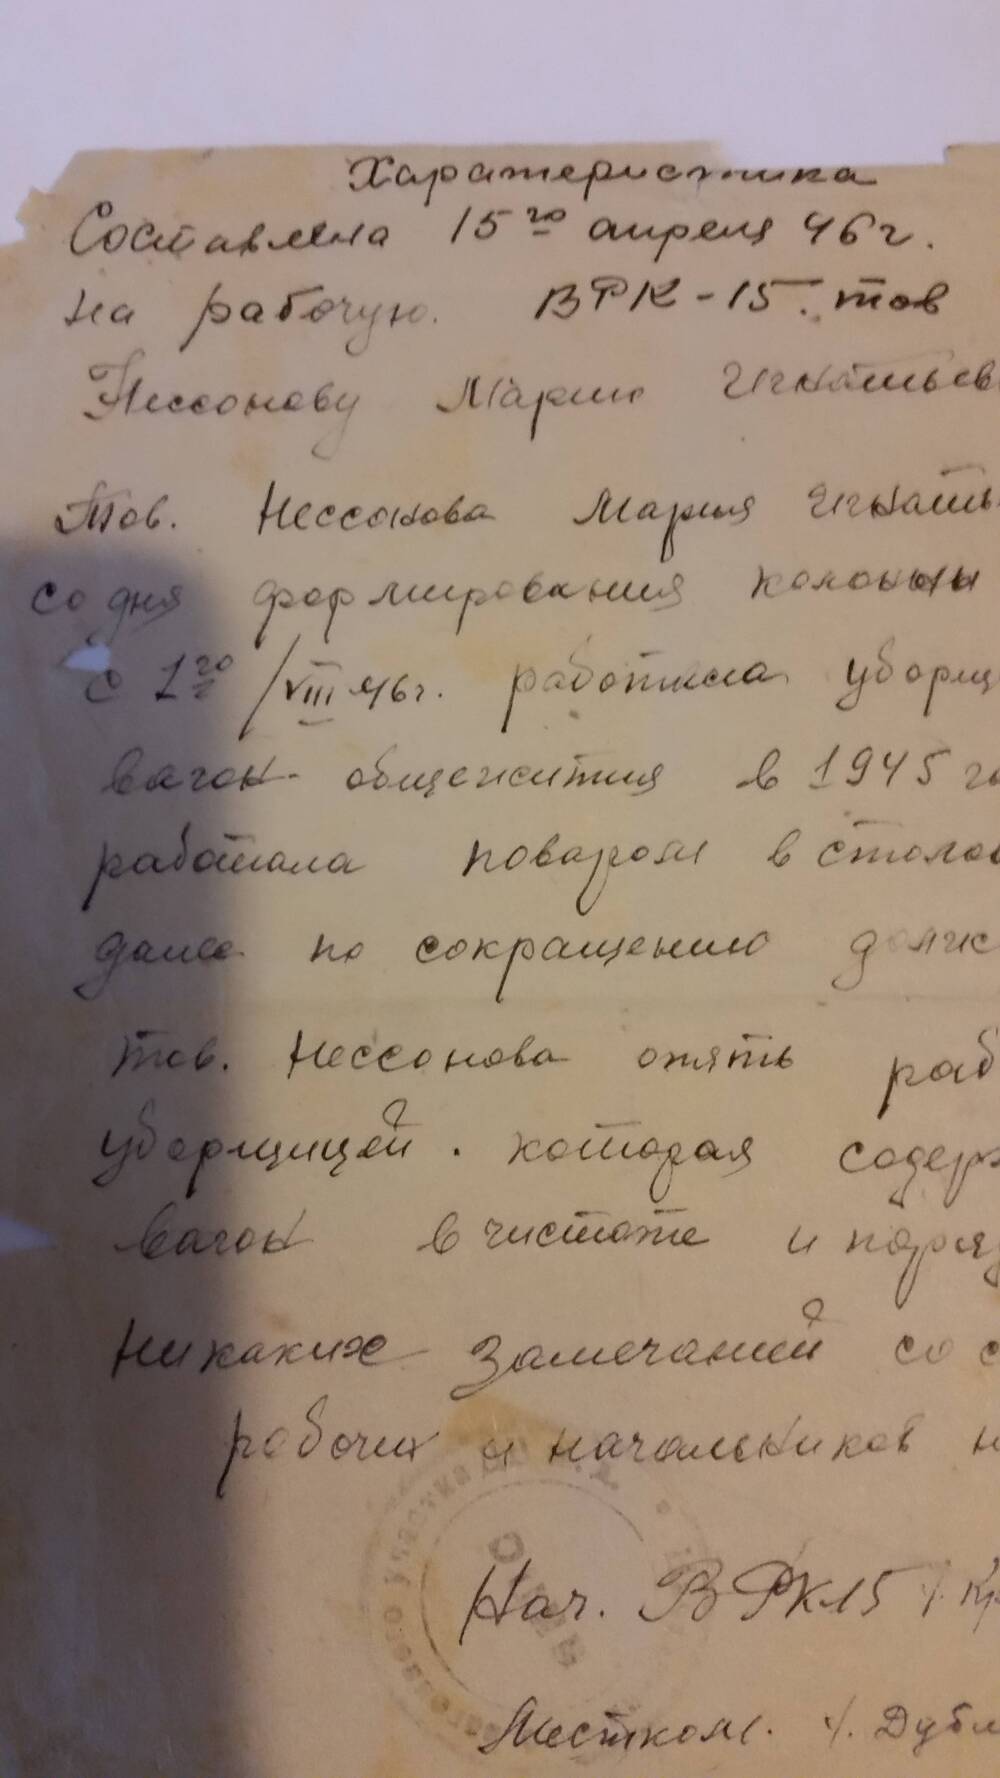 Характеристика
Составлена 15го апреля 46 г.
на рабочую. ВРК-15. тов
Нессонову Марию Игнатьев
Тов. Нессонова Мария Игнать
со дня формирования колонны
с 1го/VIII 46г. работала уборщ
вагон-общежития в 1945 го
работала поваром в столов
далее по сокращению должн
тов. Нессонова опять раб
уборщицей. которая содерж
вагон в чистоте и поряд
Никаких замечаний со с
робочих и начальников н
Нач. ВРК15 /. Кр
Местком. /. Дубл
участка